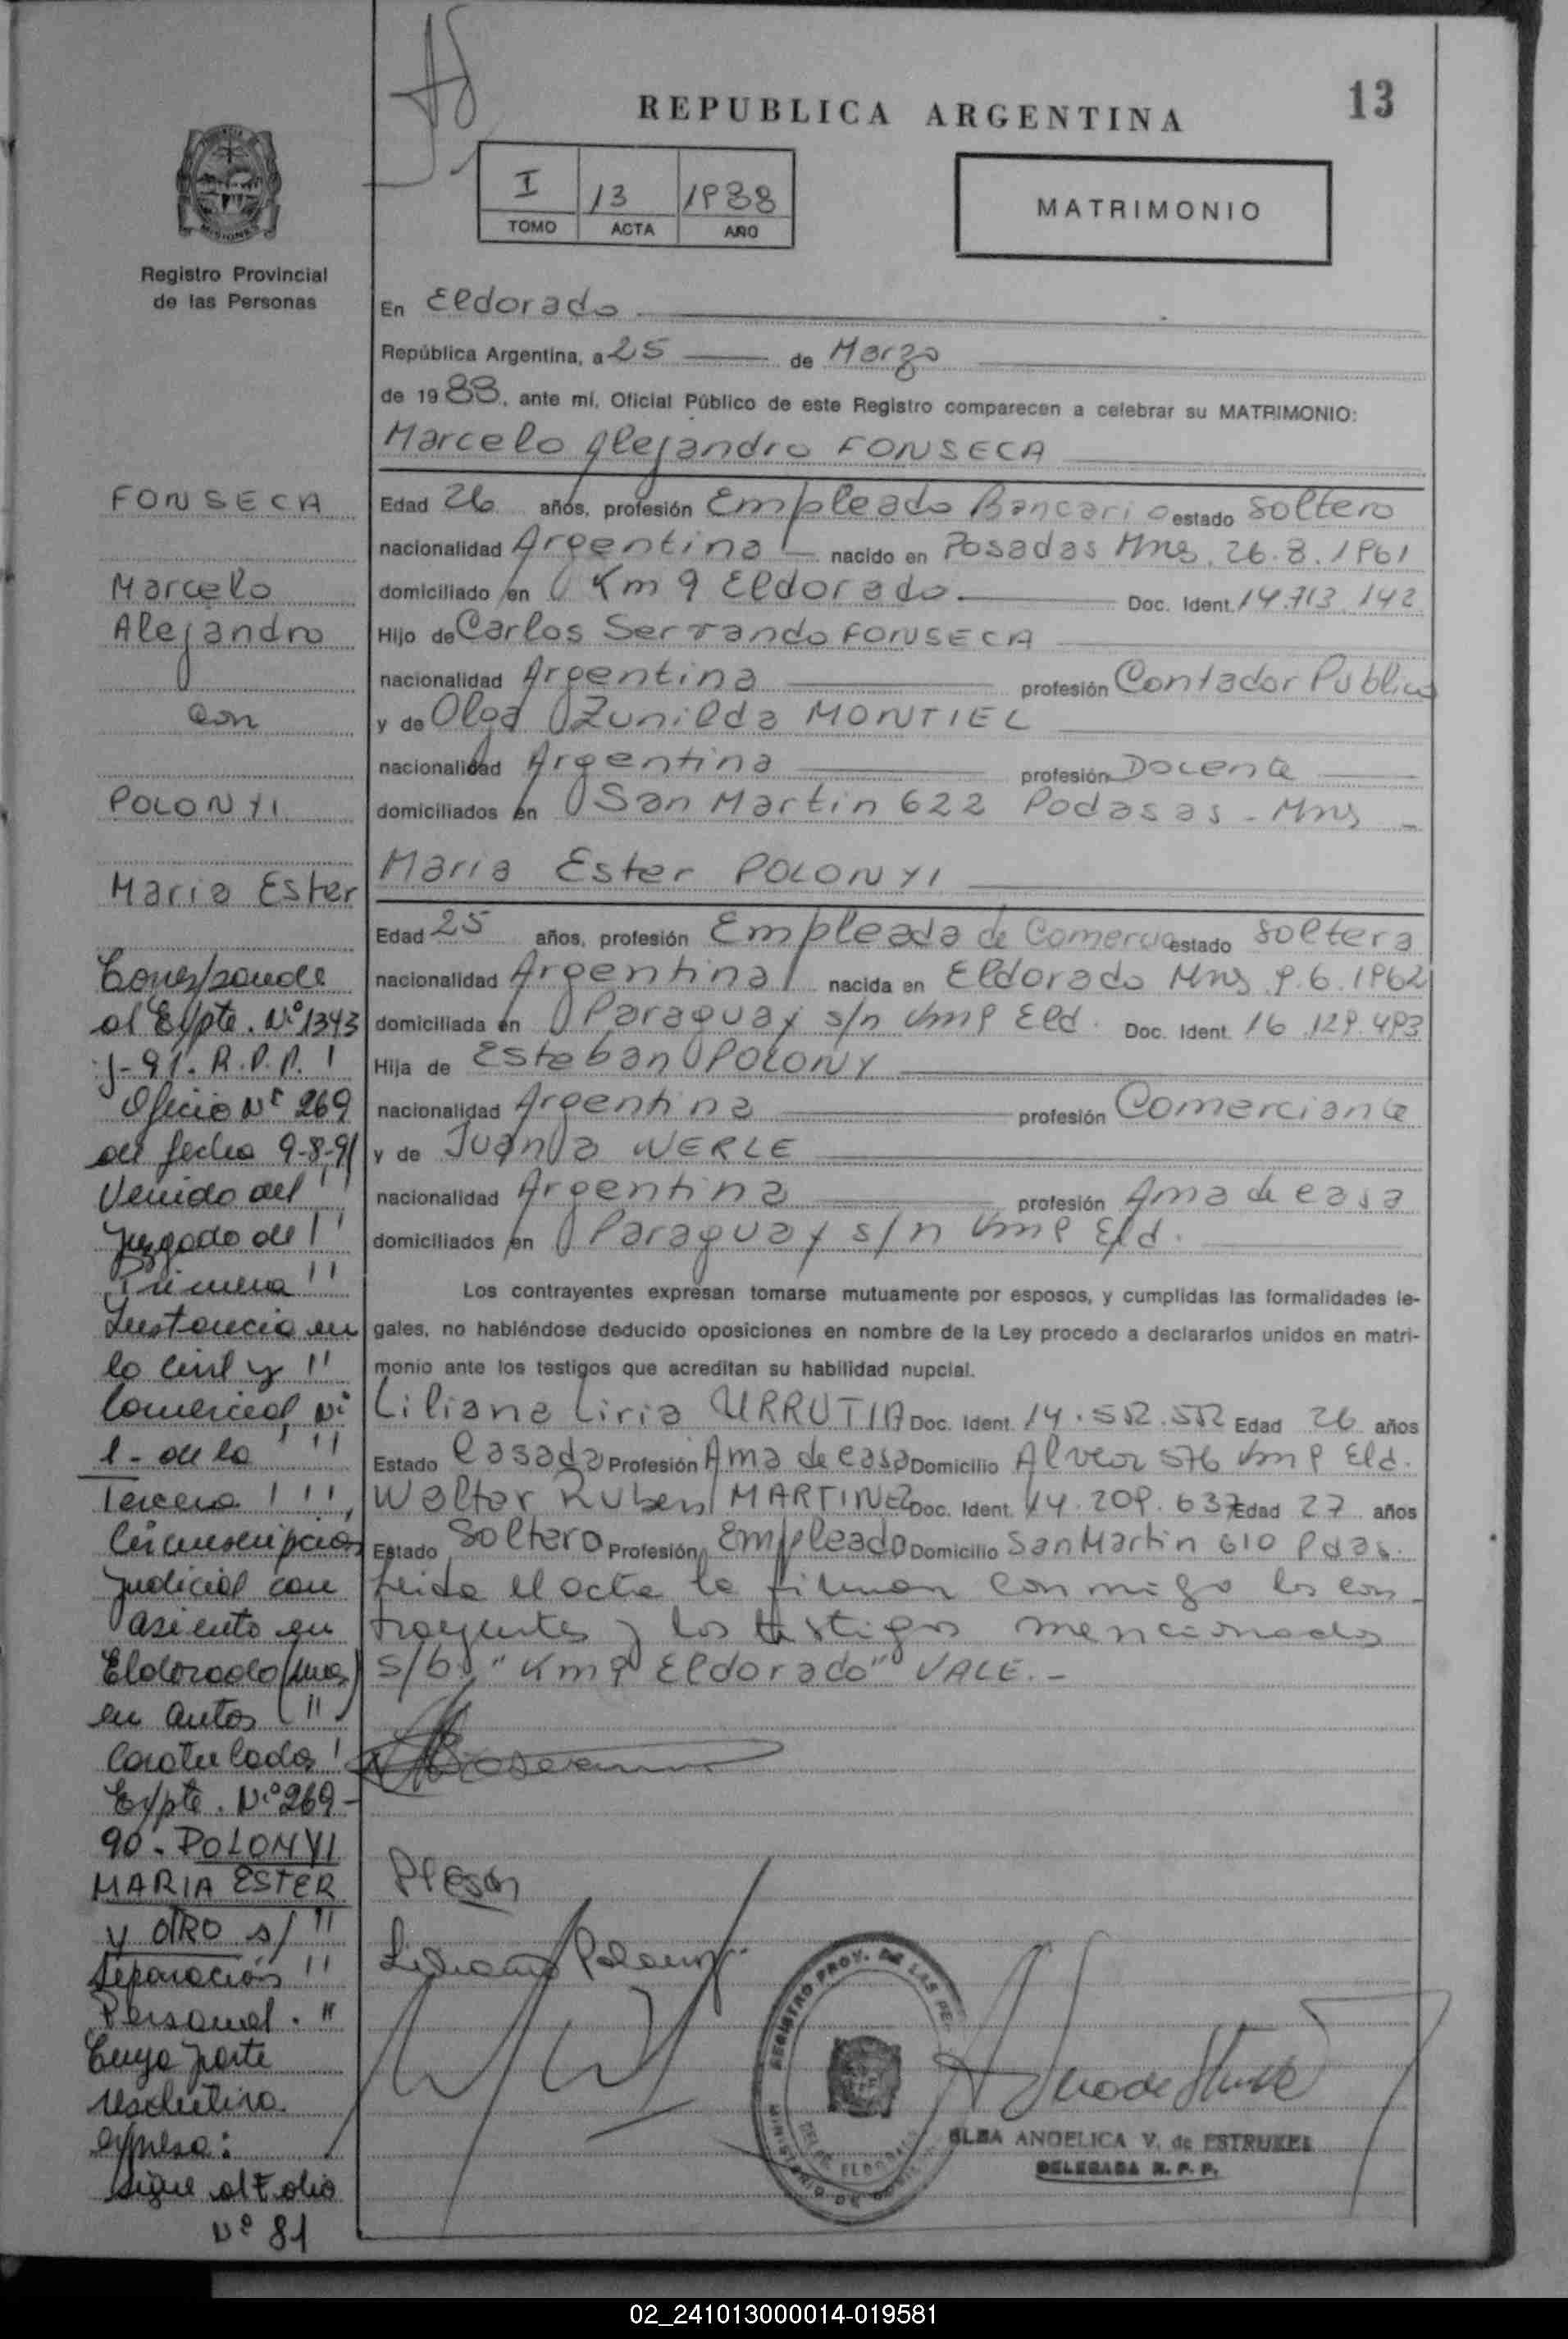 13
REPUBLICA ARGENTINA
I 13 1988
TOMO ACTA AÑO
MATRIMONIO
MISIONES
Registro Provincial
de las Personas
En Eldorado
República Argentina, a 25 de Marzo
de 1988, ante mí, Oficial Público de este Registro comparecen a celebrar su MATRIMONIO:
Marcelo Alejandro FONSECA
Edad 26 años, profesión Empleado Bancario estado Soltero
nacionalidad Argentina nacido en Posadas Mns. 26.8.1961
domiciliado en Km 9 Eldorado. Doc. Ident. 14.713.142
Hijo de Carlos Serrando FONSECA
nacionalidad Argentina profesión Contador Publico
y de Olga Zunilda MONTIEL
nacionalidad Argentina profesión Docente
domiciliados en San Martin 622 Podasas - Mns -
Maria Ester POLONYI
Edad 25 años, profesión Empleada de Comercio estado Soltera
nacionalidad Argentina nacida en Eldorado Mns 9.6.1962
domiciliada en Paraguay s/n Km 9 Eld. Doc. Ident. 16.129.493
Hija de Esteban POLONY
nacionalidad Argentina profesión Comerciante
y de Juana WERLE
nacionalidad Argentina profesión Ama de casa
domiciliados en Paraguay s/n Km 9 Eld.
Los contrayentes expresan tomarse mutuamente por esposos, y cumplidas las formalidades le-
gales, no habiéndose deducido oposiciones en nombre de la Ley procedo a declararlos unidos en matri-
monio ante los testigos que acreditan su habilidad nupcial.
Liliana Liria URRUTIA Doc. Ident. 14.552.552 Edad 26 años
Estado Casada Profesión Ama de casa Domicilio Alvear 576 Km 9 Eld.
Walter Ruben MARTINEZ Doc. Ident. 14.209.637 Edad 27 años
Estado Soltero Profesión Empleado Domicilio San Martin 610 Pdas.
Leida el acta la firman conmigo los con
trayentes y los testigos mencionados
s/b "Km 9 Eldorado" VALE. -
FONSECA
Marcelo
Alejandro
con
POLONYI
Maria Ester
Corresponde
al Expte. Nº 1343
J-91. R.P.P. !
Oficio Nº 269
del fecha 9-8-91
Venido del !!
Juzgado de !!
Primera !!
Instancia en
lo Civil y !!
Comercial Nº
1 - de la !!
Tercera !!!
Circunscripcion
Judicial con
asiento en
Eldorado (Mns)
en autos !!
Caratulados !
Expte. Nº 269-
90 - POLONYI
MARIA ESTER
y OTRO s/ !!
Separación !!
Personal. "
Cuya parte
resolutiva
expresa:
Sigue al Folio
Nº 81
REGISTRO PROV. DE LAS PE
MINISTERIO DE GOBIE
ELBA ANGELICA V. de ESTRUKEL
DELEGADA R. P. P.
02_241013000014-019581